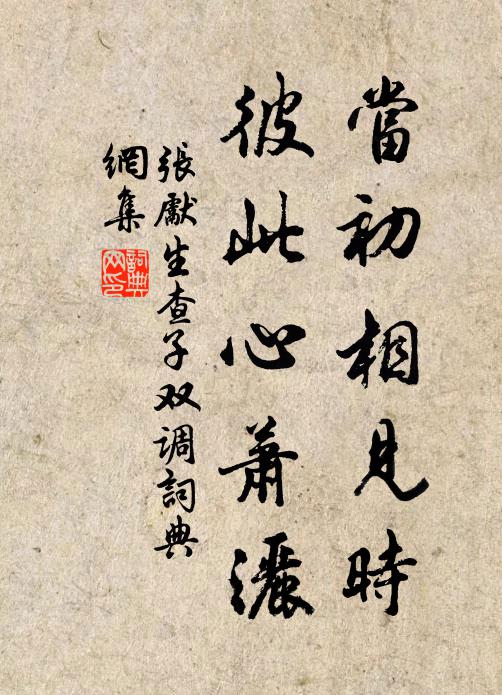 當初相見時
彼此心蕭灑
張獻生查子双调詞典
網集
詞典
网印